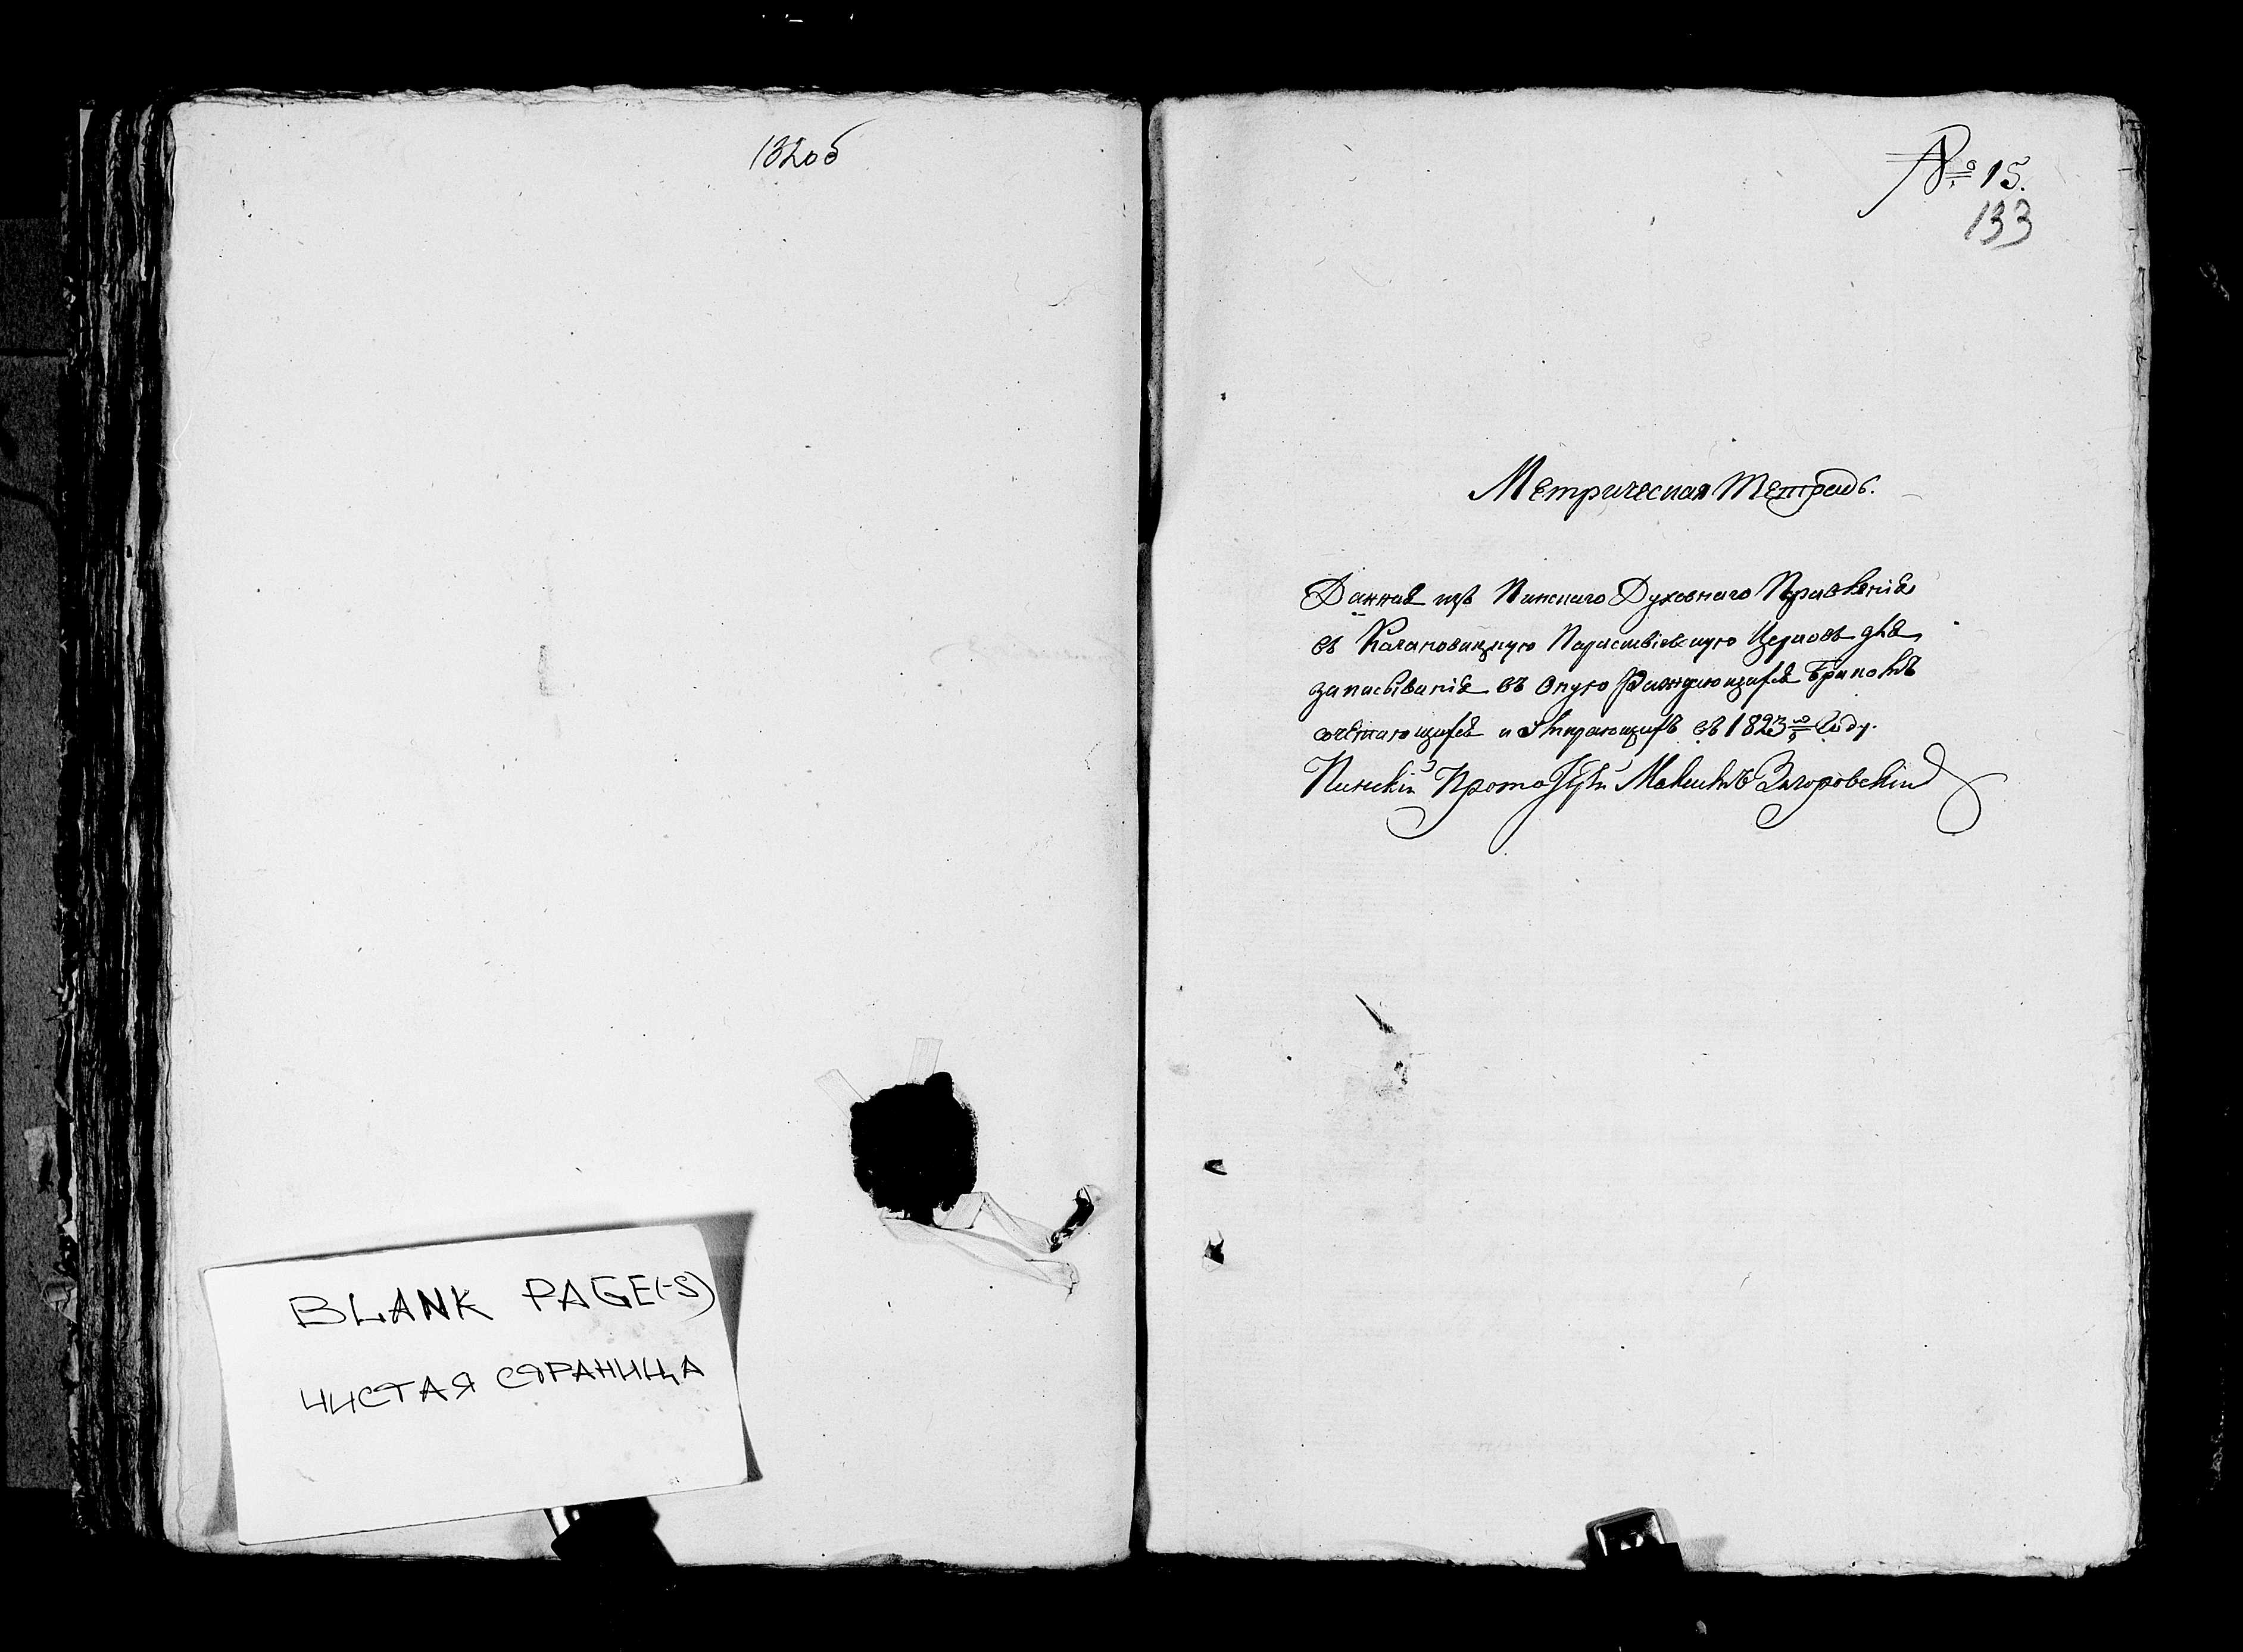 132об
BLANK PAGE(-S)
ЧИСТАЯ СТРАНИЦА
№ 15.
133
Метрическая Тетрадь.
Данная изъ Пинскаго Духовнаго Правленія
въ Качановицкую Церковь для
записыванія въ оную Раждающихся Бракомъ
сочетающихся и Умирающихъ въ 1823 Году.
Пинскій Загоровскій